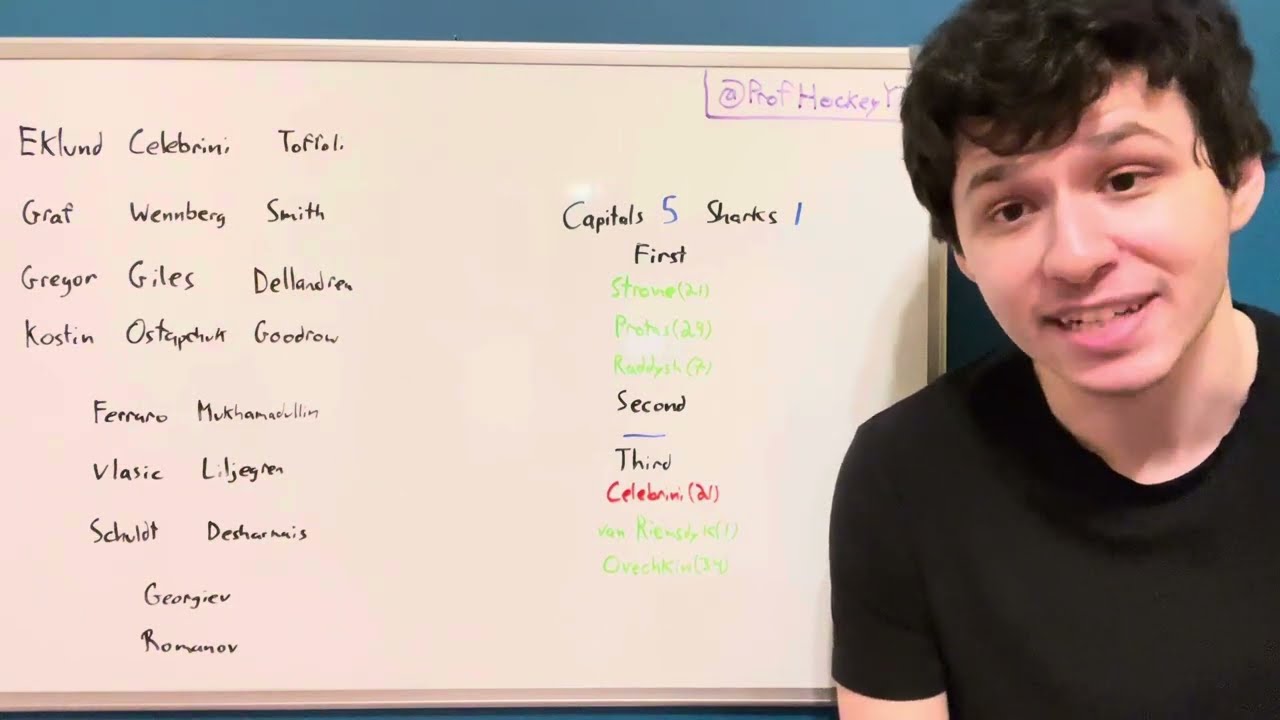 @ProfHockeyYT
Eklund Celebrini Toffoli
Graf Wennberg Smith
Gregor Giles Dellandrea
Kostin Ostapchuk Goodrow
Ferraro Mukhamadullin
Vlasic Liljegren
Schuldt Desharnais
Georgiev
Romanov
Capitals 5 Sharks 1
First
Strome(21)
Protas(29)
Raddysh(7)
Second
—
Third
Celebrini(21)
van Riemsdyk(1)
Ovechkin(34)